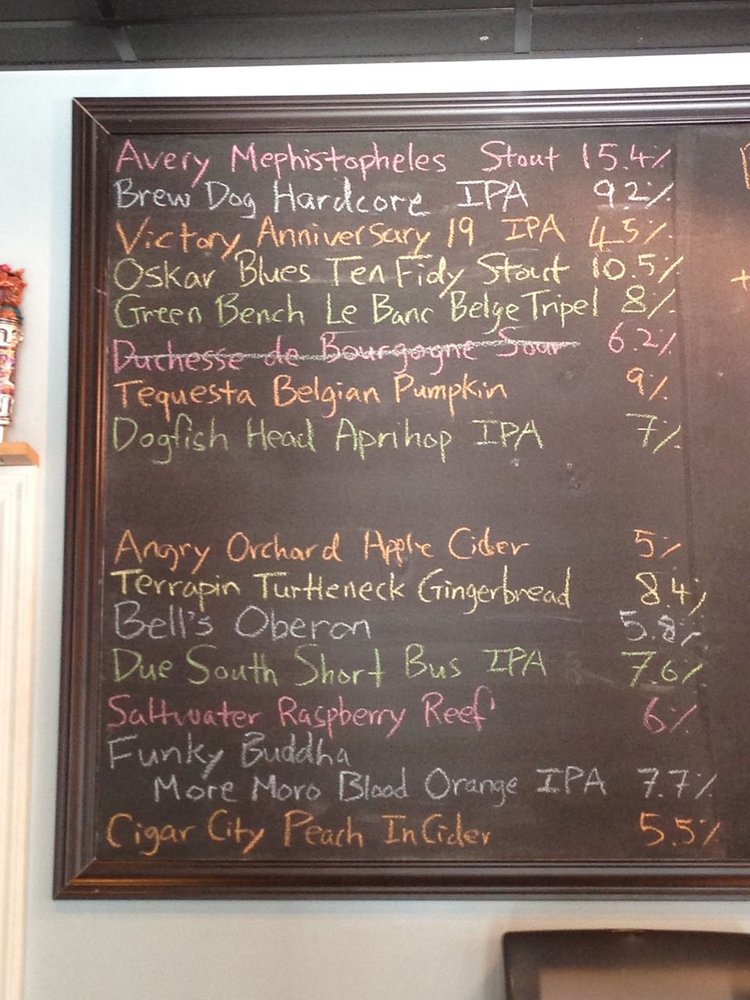 Avery Mephistopheles Stout 15.4%
Brew Dog Hardcore IPA 92%
Victory Anniversary 19 IPA 4.5%
Oskar Blues Ten Fidy Stout 10.5%
Green Bench Le Banc Belge Tripel 8%
Duchesse de Bourgogne Sour 6.2%
Tequesta Belgian Pumpkin 9%
Dogfish Head Aprihop IPA 7%
Angry Orchard Apple Cider 5%
Terrapin Turtleneck Gingerbread 8.4%
Bell's Oberon 5.8%
Due South Short Bus IPA 7.6%
Saltwater Raspberry Reef 6%
Funky Buddha
More Moro Blood Orange IPA 7.7%
Cigar City Peach InCider 5.5%